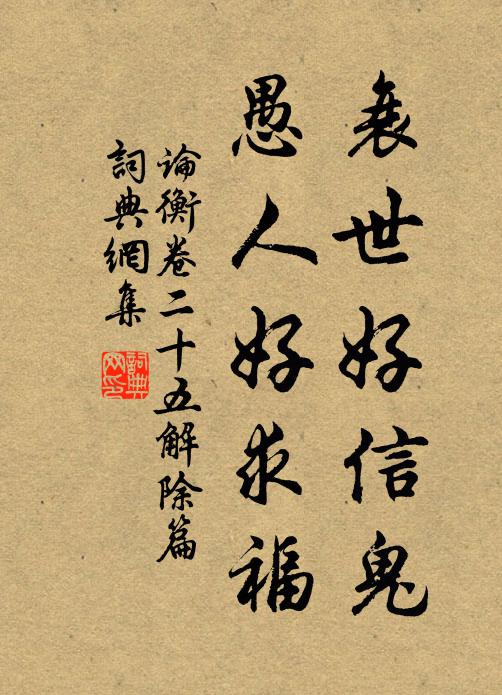 衰世好信鬼
愚人好求福
論衡卷二十五解除篇
詞典網集
詞典
网印